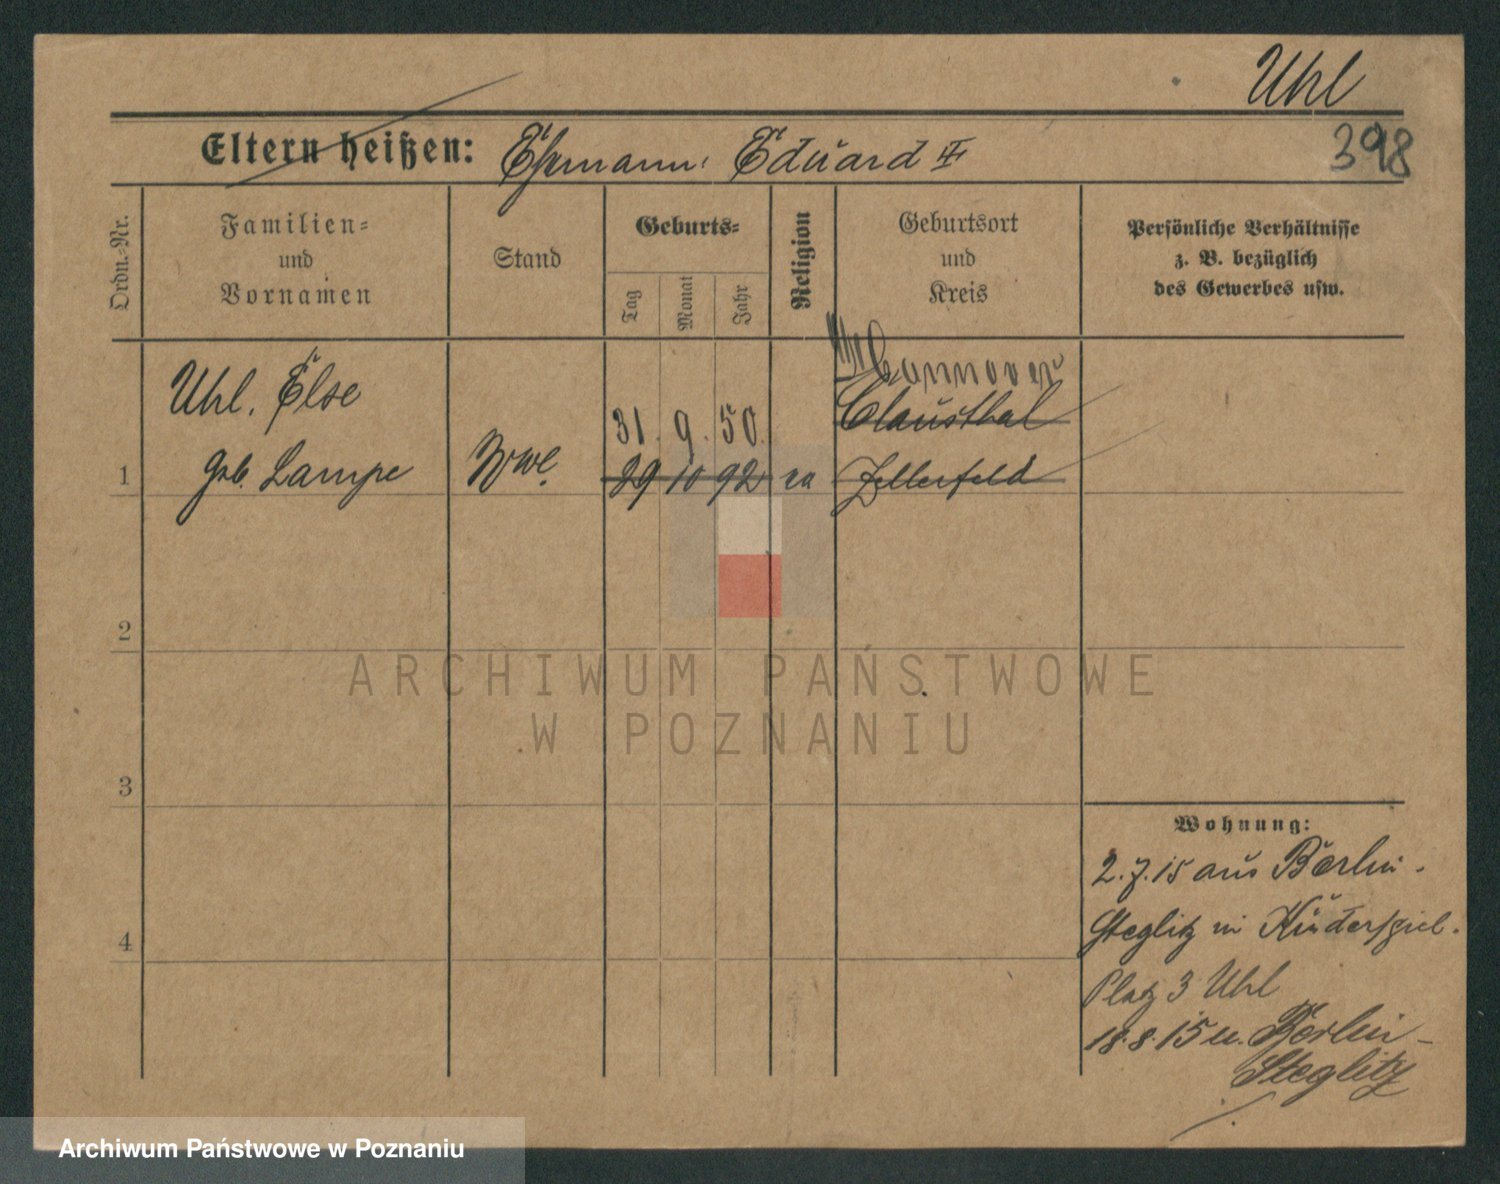 Uhl
398
Eltern heißen: Ehemann: Eduard
Ordn.-Nr.
Familien- und Vornamen
Stand
Geburts-
Tag
Monat
Jahr
Religion
Geburtsort und Kreis
Persönliche Verhältnisse z. B. bezüglich des Gewerbes usw.
Hannover
Uhl, Else
Clausthal
31. 9. 50.
1 geb. Lampe Wwe. 29 10 92 ev Zellerfeld
2
ARCHIWUM PAŃSTWOWE
W POZNANIU
3
Wohnung:
2.7.15 aus Berlin-
Steglitz in
4
Platz 3 Uhl
18.8.15 n. Berlin-
Steglitz
Archiwum Państwowe w Poznaniu